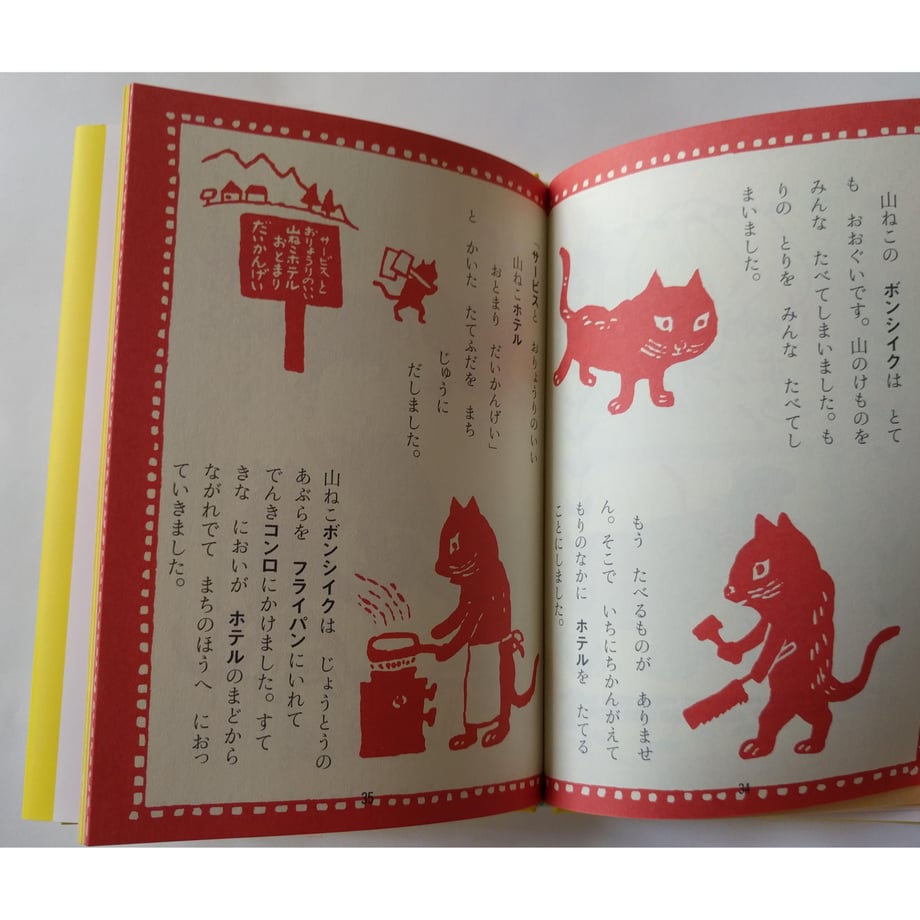 山ねこの ボンシイクは とて
も おおぐいです。山のけものを
みんな たべてしまいました。も
りの とりを みんな たべてし
まいました。
もう たべるものが ありませ
ん。そこで いちにちかんがえて
もりのなかに ホテルを たてる
ことにしました。
34
「サービスと おりょうりのいい
山ねこホテル
おとまり だいかんげい」
と かいた たてふだを まち
じゅうに
だしました。
サービスと
おりょうりのいい
山ねこホテル
おとまり
だいかんげい
山ねこボンシイクは じょうとうの
あぶらを フライパンにいれて
でんきコンロにかけました。すて
きな においが ホテルのまどから
ながれでて まちのほうへ におっ
ていきました。
35